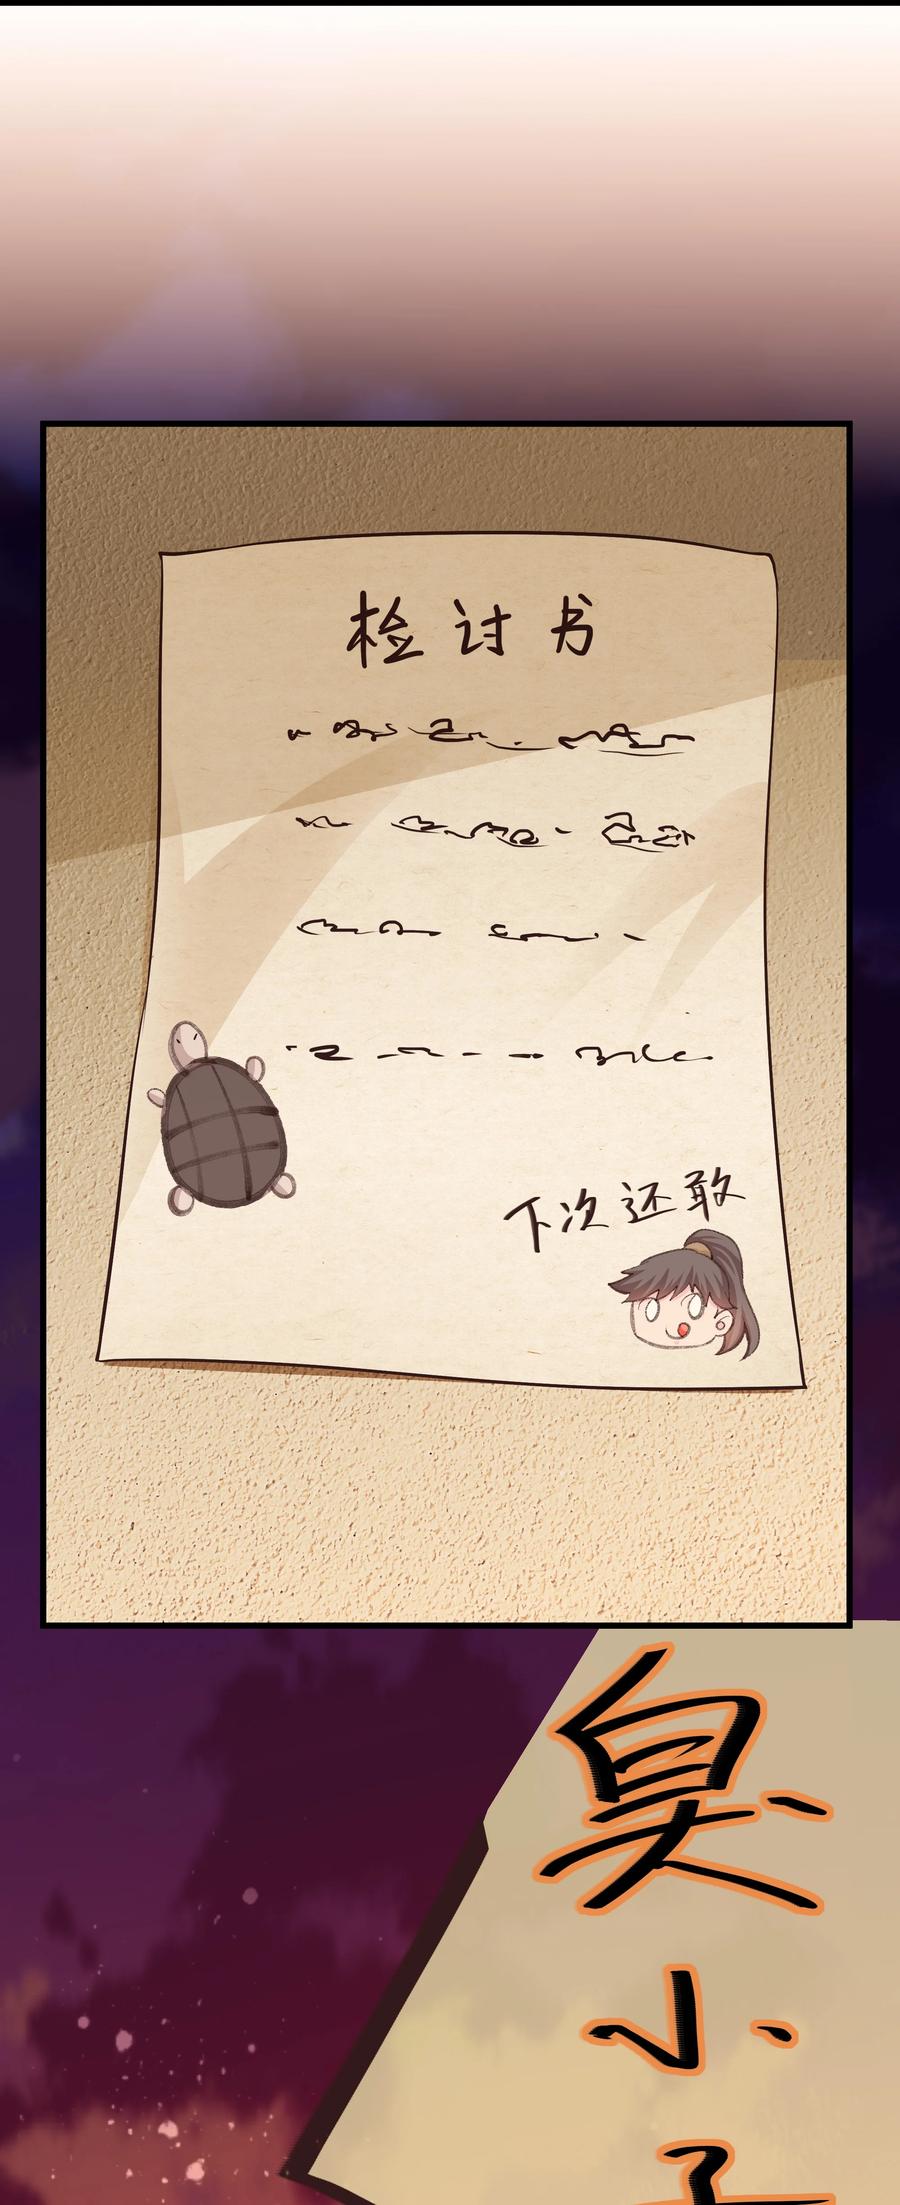 检讨书
下次还敢
臭
小
子